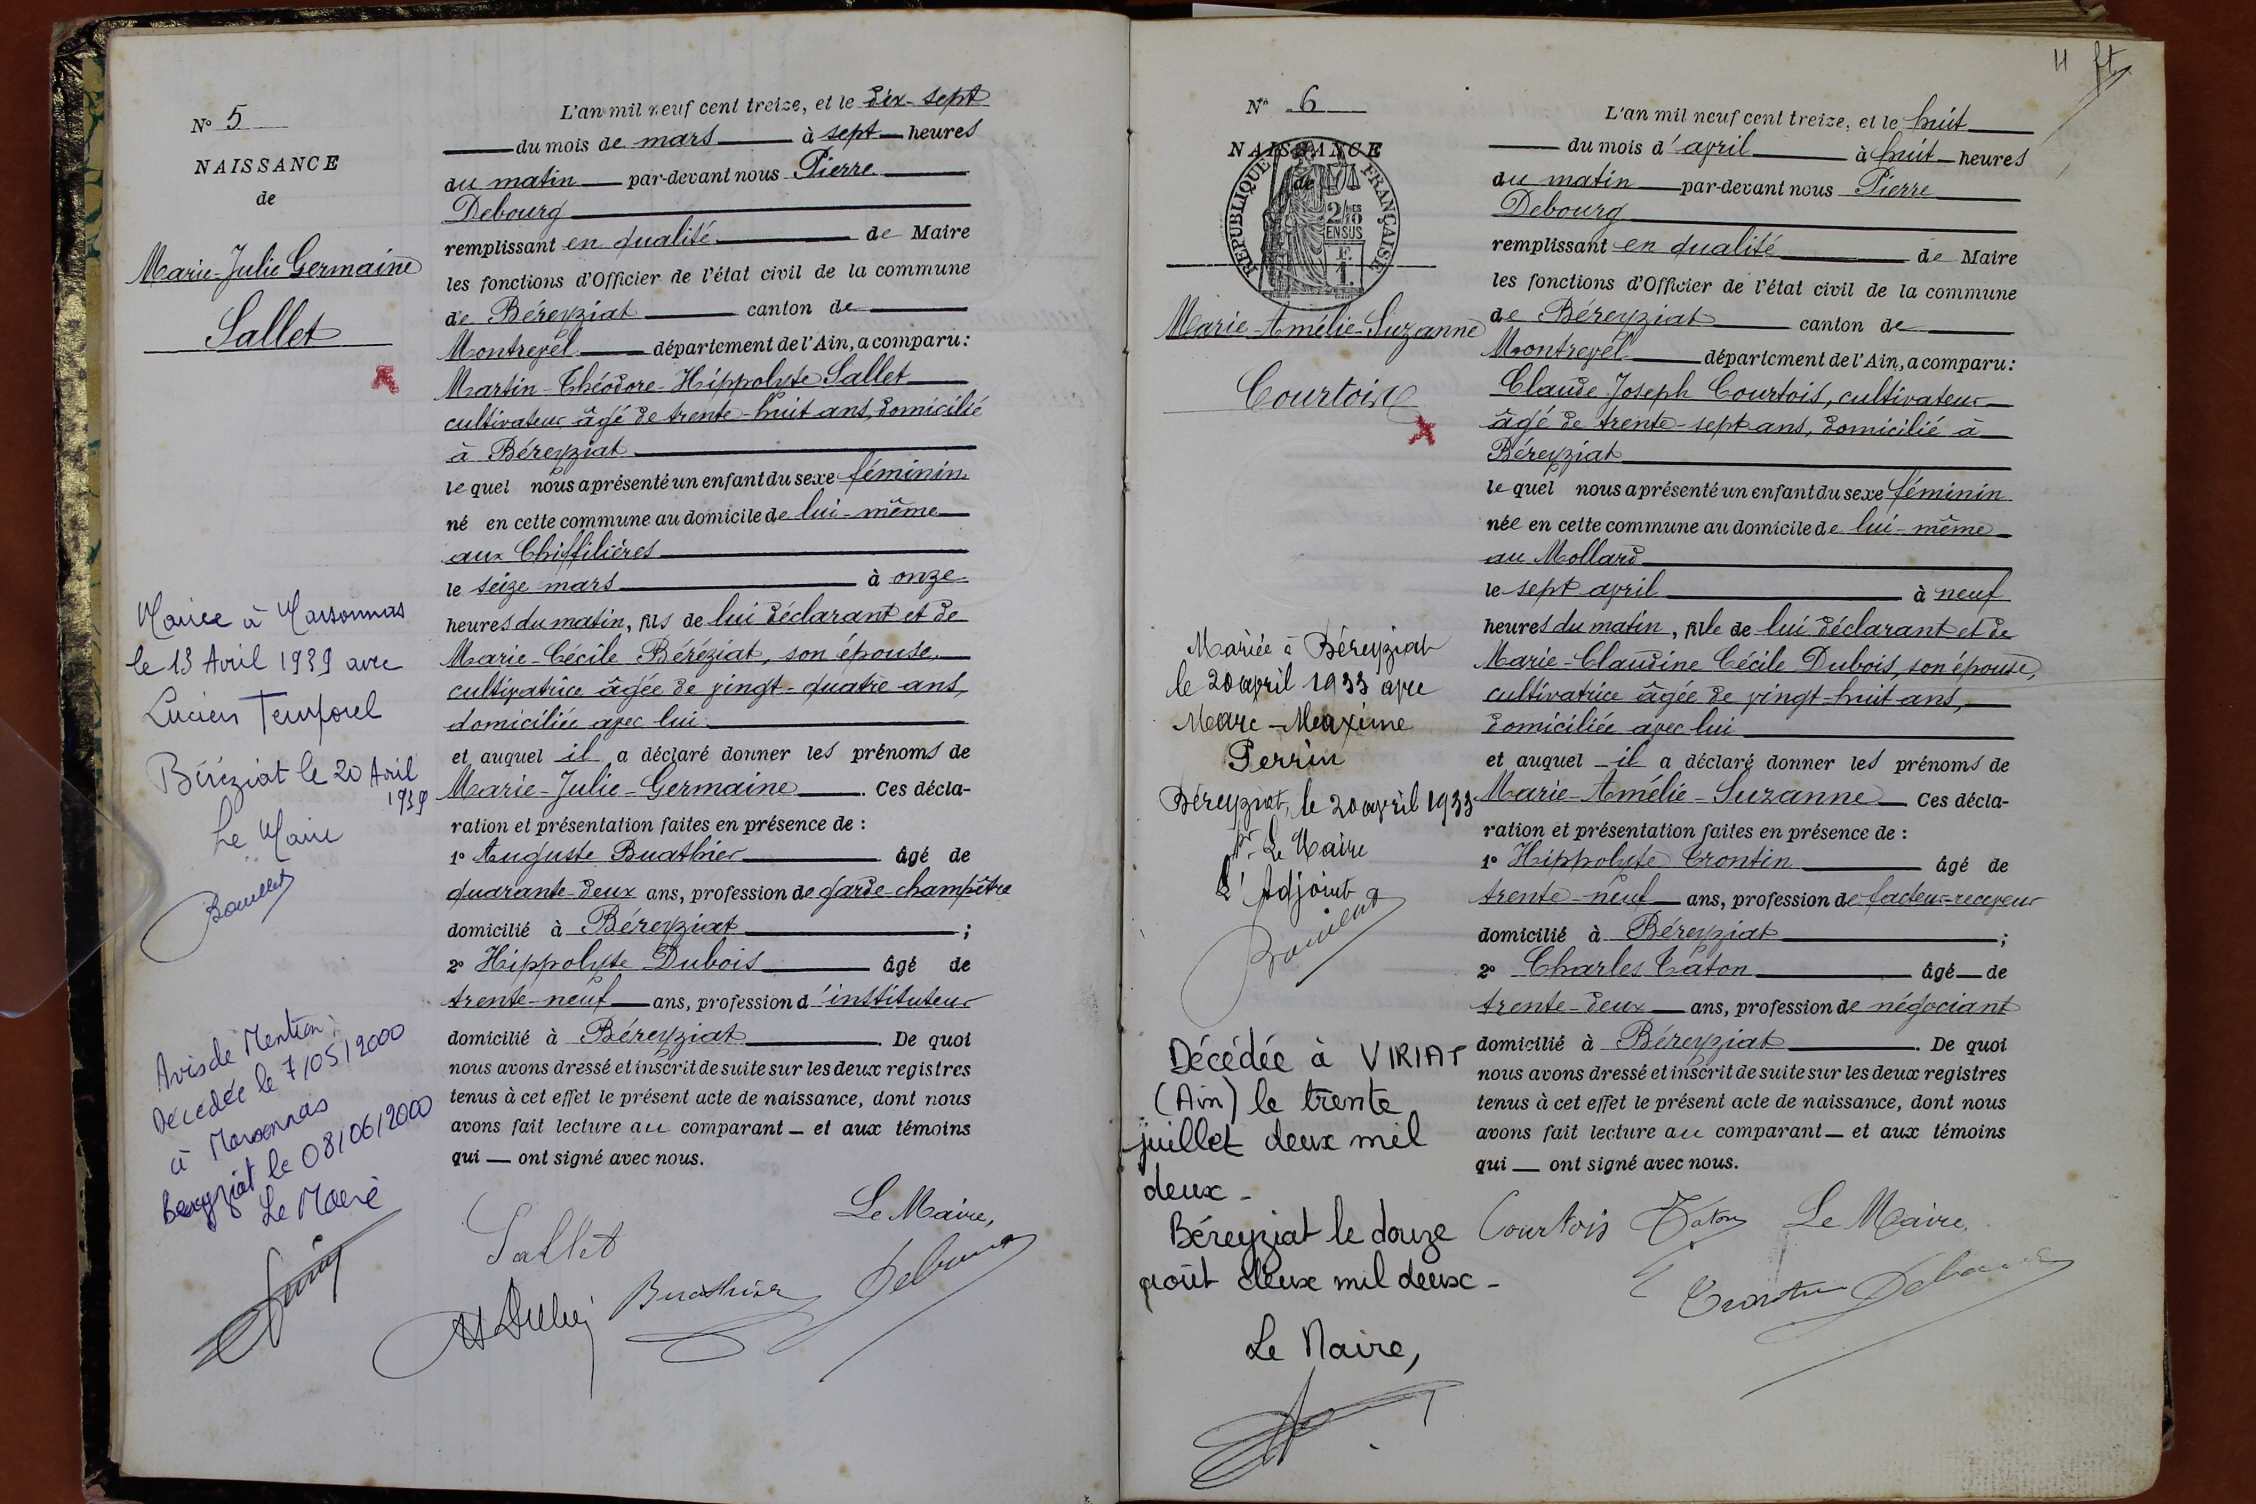 N° 5
NAISSANCE
de
Marie-Julie Germaine
Sallet
L'an mil neuf cent treize, et le dix-sept
du mois de mars à sept heures
du matin par-devant nous Pierre
Debourg
remplissant en qualité de Maire
les fonctions d'Officier de l'état civil de la commune
de Béreyziat canton de
Montrevel département de l'Ain, a comparu:
Martin-Théodore-Hippolyte Sallet
cultivateur âgé de trente-huit ans, domicilié
à Béreyziat
lequel nous a présenté un enfant du sexe féminin
né en cette commune au domicile de lui-même
aux Chiffilières
le seize mars à onze
heures du matin, fils de lui déclarant et de
Marie-Cécile Béréziat, son épouse,
cultivatrice âgée de vingt-quatre ans,
domiciliée avec lui
et auquel il a déclaré donner les prénoms de
Marie-Julie-Germaine. Ces décla-
ration et présentation faites en présence de :
1° Auguste Buathier âgé de
quarante-deux ans, profession de garde-champêtre
domicilié à Béreyziat ;
2° Hippolyte Dubois âgé de
trente-neuf ans, profession d'instituteur
domicilié à Béreyziat. De quoi
nous avons dressé et inscrit de suite sur les deux registres
tenus à cet effet le présent acte de naissance, dont nous
avons fait lecture au comparant et aux témoins
qui ont signé avec nous.
Le Maire,
Sallet
Buathier
Debourg
Mariée à Marsonnas
le 13 Avril 1939 avec
Lucien Temporel
Béréziat le 20 Avril
1939
Le Maire
Avis de Mention :
Décédée le 7/05/2000
à Marsonnas
Bereyziat le 08/06/2000
Le Maire
11
N° 6
NAISSANCE
de
REPUBLIQUE FRANÇAISE
2/10 ES
EN SUS
Marie-Amélie-Suzanne
Courtois
L'an mil neuf cent treize, et le huit
du mois d'avril à huit heures
du matin par-devant nous Pierre
Debourg
remplissant en qualité de Maire
les fonctions d'Officier de l'état civil de la commune
de Béreyziat canton de
Montrevel département de l'Ain, a comparu:
Claude Joseph Courtois, cultivateur
âgé de trente-sept ans, domicilié à
Béreyziat
lequel nous a présenté un enfant du sexe féminin
née en cette commune au domicile de lui-même
au Mollard
le sept avril à neuf
heures du matin, fille de lui déclarant et de
Marie-Claudine Cécile Dubois, son épouse,
cultivatrice âgée de vingt-huit ans,
domiciliée avec lui
et auquel il a déclaré donner les prénoms de
Marie-Amélie-Suzanne Ces décla-
ration et présentation faites en présence de :
1° Hippolyte Trontin âgé de
trente-neuf ans, profession de facteur-receveur
domicilié à Béreyziat ;
2° Charles Caton âgé de
trente-deux ans, profession de négociant
domicilié à Béreyziat. De quoi
nous avons dressé et inscrit de suite sur les deux registres
tenus à cet effet le présent acte de naissance, dont nous
avons fait lecture au comparant et aux témoins
qui ont signé avec nous.
Courtois Le Maire,
Debourg
Mariée à Béreyziat
le 20 avril 1933 avec
Marc-Maxime
Perrin
Béreyziat, le 20 avril 1933
Pr Le Maire
L'Adjoint
Décédée à VIRIAT
(Ain) le trente
juillet deux mil
deux -
Béreyziat le douze
août deux mil deux -
Le Maire,